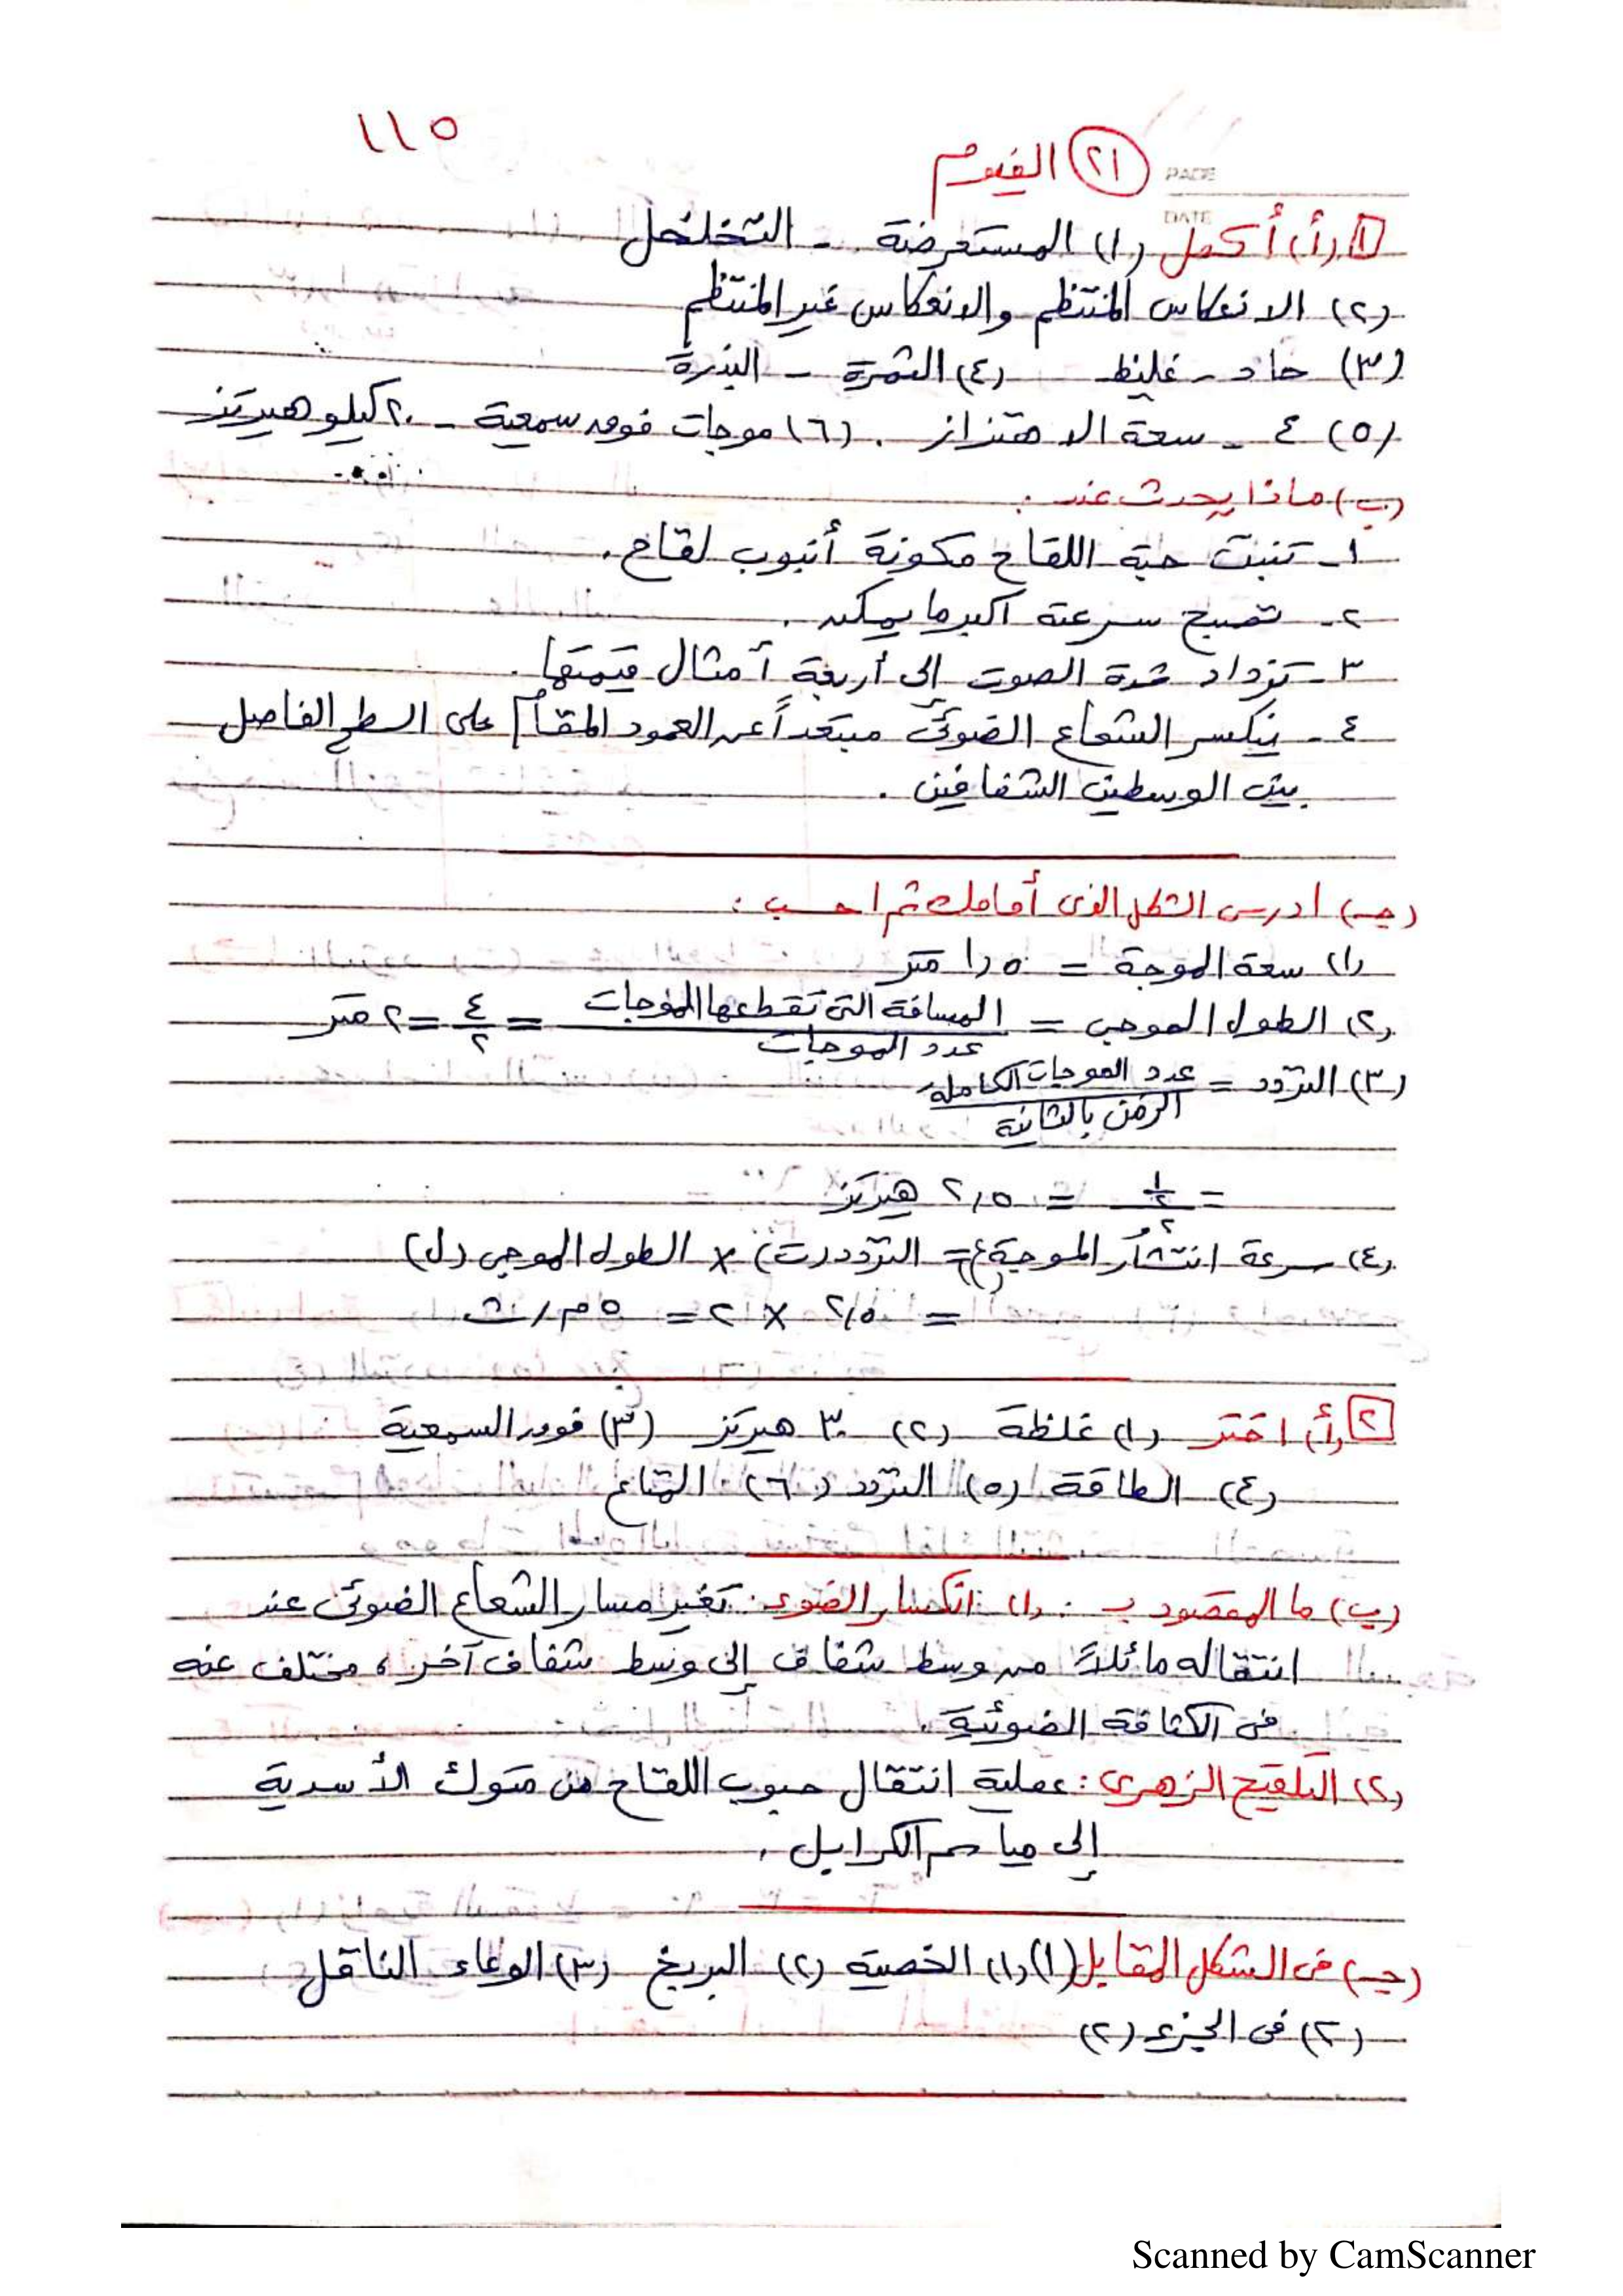 ١١٥
(٢١) الفيوم
PAGE
DATE
١ (أ) أكمل (١) المستعرضة - التخلخل
(٢) الانعكاس المنتظم والانعكاس غير المنتظم
(٣) حاد - غليظ (٤) الثمرة - البذرة
(٥) ٤ - سعة الاهتزاز . (٦) موجات فوق سمعية - ٢٠ كيلو هيرتز
(ب) ماذا يحدث عند :
١- تنبت حبة اللقاح مكونة أنبوب لقاح .
٢- تصبح سرعته أكبر ما يمكن .
٣- تزداد شدة الصوت إلى أربعة أمثال قيمتها .
٤- ينكسر الشعاع الضوئى مبتعداً عن العمود المقام على السطح الفاصل
بين الوسطين الشفافين .
(جـ) ادرس الشكل الذى أمامك ثم احسب :
(١) سعة الموجة = ١,٥ متر
(٢) الطول الموجى = المسافة التى تقطعها الموجات / عدد الموجات = ٤/٢ = ٢ متر
(٣) التردد = عدد الموجات الكاملة / الزمن بالثانية
= = ٢,٥ هيرتز
(٤) سرعة انتشار الموجة (ع) = التردد (ت) × الطول الموجى (ل)
= ٢,٥ × ٢ = ٥ م/ث
٢ (أ) اختر (١) غلظة (٢) ٣٠ هيرتز (٣) فوق السمعية
(٤) الطاقة (٥) التردد (٦) المتاع
(ب) ما المقصود بـ : (١) انكسار الضوء : تغير مسار الشعاع الضوئى عند
انتقاله مائلاً من وسط شفاف إلى وسط شفاف آخر ، مختلف عنه
فى الكثافة الضوئية .
(٢) التلقيح الزهرى : عملية انتقال حبوب اللقاح من متوك الأسدية
إلى مياسم الكرابل .
(جـ) فى الشكل المقابل (١) (١) الخصية (٢) البربخ (٣) الوعاء الناقل
(٢) فى الجزء (٢)
Scanned by CamScanner